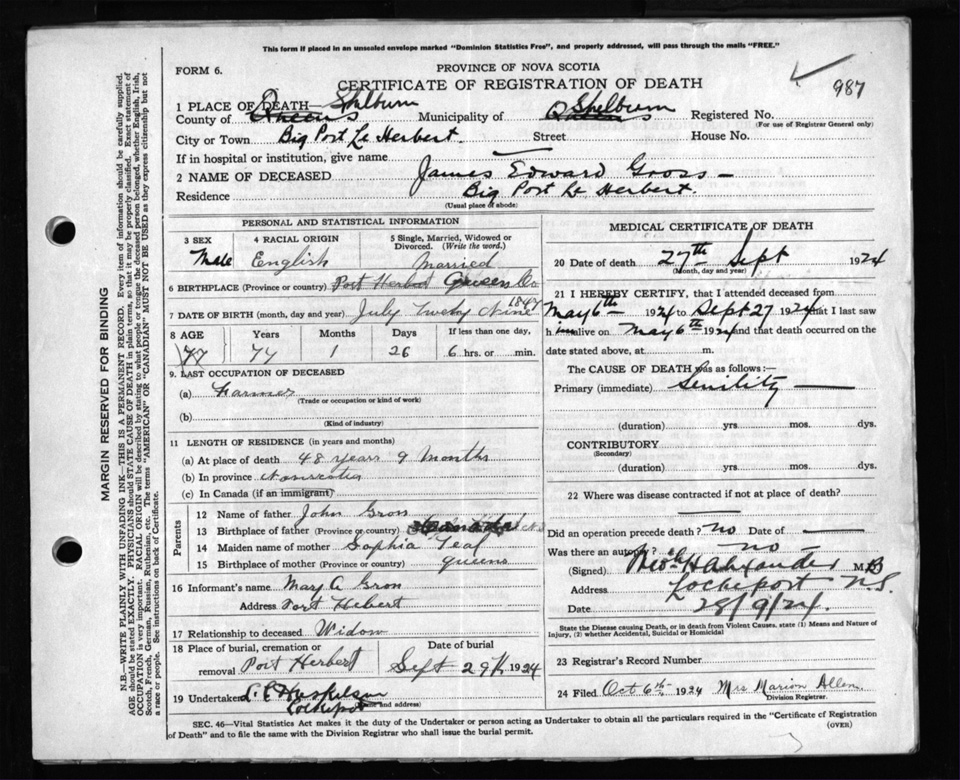 This form if placed in an unsealed envelope marked "Dominion Statistics Free", and properly addressed, will pass through the mails "FREE."
FORM 6.
PROVINCE OF NOVA SCOTIA
CERTIFICATE OF REGISTRATION OF DEATH
987
1 PLACE OF DEATH— Shelburn Shelburn
County of Queens Municipality of Queens Registered No.
(For use of Registrar General only)
City or Town Big Port Le Herbert. Street House No.
If in hospital or institution, give name —
2 NAME OF DECEASED James Edward Gross —
Residence Big Port Le Herbert.
(Usual place of abode)
PERSONAL AND STATISTICAL INFORMATION
3 SEX 4 RACIAL ORIGIN 5 Single, Married, Widowed or Divorced. (Write the word.)
Male English Married
6 BIRTHPLACE (Province or country) Port Herbert Queens Co
7 DATE OF BIRTH (month, day and year) July Twenty Nine 1847
8 AGE Years Months Days If less than one day,
77 77 1 26 6 hrs. or min.
9. LAST OCCUPATION OF DECEASED
(a) Farmer
(Trade or occupation or kind of work)
(b)
(Kind of industry)
11 LENGTH OF RESIDENCE (in years and months)
(a) At place of death 48 years 9 months
(b) In province Novascotia
(c) In Canada (if an immigrant)
Parents
12 Name of father John Gross
13 Birthplace of father (Province or country) N.S
14 Maiden name of mother Sophia Teal
15 Birthplace of mother (Province or country) queens
16 Informant's name Mary A Gross
Address Port Hebert
17 Relationship to deceased Widow
18 Place of burial, cremation or removal Port Herbert Date of burial Sept 29th 1924
19 Undertaker L. E Huskilson
Lockeport
(Name and address)
MEDICAL CERTIFICATE OF DEATH
20 Date of death 27th Sept 1924
(Month, day and year)
21 I HEREBY CERTIFY, that I attended deceased from
May 6th 1924 to Sept 27 1924 that I last saw
h im alive on May 6th 1924 and that death occurred on the
date stated above, at m.
The CAUSE OF DEATH was as follows:—
Primary (immediate) Senility —
(duration) yrs. mos. dys.
CONTRIBUTORY
(Secondary)
(duration) yrs. mos. dys.
22 Where was disease contracted if not at place of death?
—
Did an operation precede death? no Date of —
Was there an autopsy? no
(Signed) H Alexander M.D
Address Lockeport N.S.
Date 28/9/24.
State the Disease causing Death, or in death from Violent Causes, state (1) Means and Nature of Injury, (2) whether Accidental, Suicidal or Homicidal
23 Registrar's Record Number
24 Filed Oct 6th 1924 Mrs Marion Allen
Division Registrar.
SEC. 46—Vital Statistics Act makes it the duty of the Undertaker or person acting as Undertaker to obtain all the particulars required in the "Certificate of Registration
of Death" and to file the same with the Division Registrar who shall issue the burial permit.
(OVER)
MARGIN RESERVED FOR BINDING
N.B.—WRITE PLAINLY WITH UNFADING INK—THIS IS A PERMANENT RECORD. Every item of information should be carefully supplied.
AGE should be stated EXACTLY. PHYSICIANS should STATE CAUSE OF DEATH in plain terms, so that it may be properly classified. Exact statement of
OCCUPATION is very important. RACIAL ORIGIN will be described by stating to what people or tongue the deceased person belonged, whether English, Irish,
Scotch, French, German, Russian, Ruthenian, etc. The terms "AMERICAN" OR "CANADIAN" MUST NOT BE USED as they express citizenship but not
a race or people. See instructions on back of Certificate.